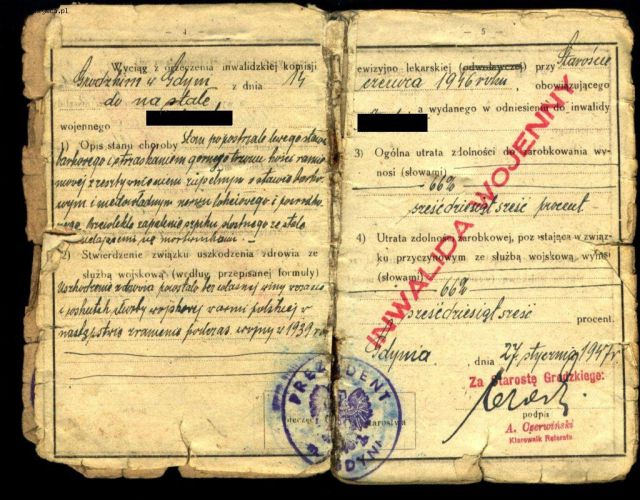 4
Wyciąg z orzeczenia inwalidzkiej komisji
Grodzkim w Gdyni z dnia 14
do na stałe,
wojennego
1) Opis stanu choroby Stan po postrzale lewego stawu
barkowego i strzaskaniem górnego trzonu kości ramie
niowej z zesztywnieniem zupełnym w stawie barko-
wym i niedowładnym nerwu łokciowego i pośrodko-
wego. Przewlekłe zapalenie szpiku kostnego ze stale
2) Stwierdzenie związku uszkodzenia zdrowia ze
służbą wojskową (według przepisanej formuły)
Uszkodzenie zdrowia powstało bez własnej winy
i wskutek służby wojskowej w armii polskiej w
następstwie zranienia podczas wojny w 1939 r.
5
rewizyjno lekarskiej (odwoławczej) przy Staroście
czerwca 1946 roku, obowiązującego
a wydanego w odniesieniu do inwalidy
3) Ogólna utrata zdolności do zarobkowania wy-
nosi (słowami)
66%
sześćdziesiąt sześć procent
4) Utrata zdolności zarobkowej, pozostająca w związ-
ku przyczynowym ze służbą wojskową wynosi
(słowami)
66%
sześćdziesiąt sześć procent.
Gdynia, dnia 27 stycznia 1947 r.
INWALIDA WOJENNY
Za Starostę Grodzkiego:
podpis
A. Czerwiński
Kierownik Referatu
PREZYDENT
GDYNI
Starostwa